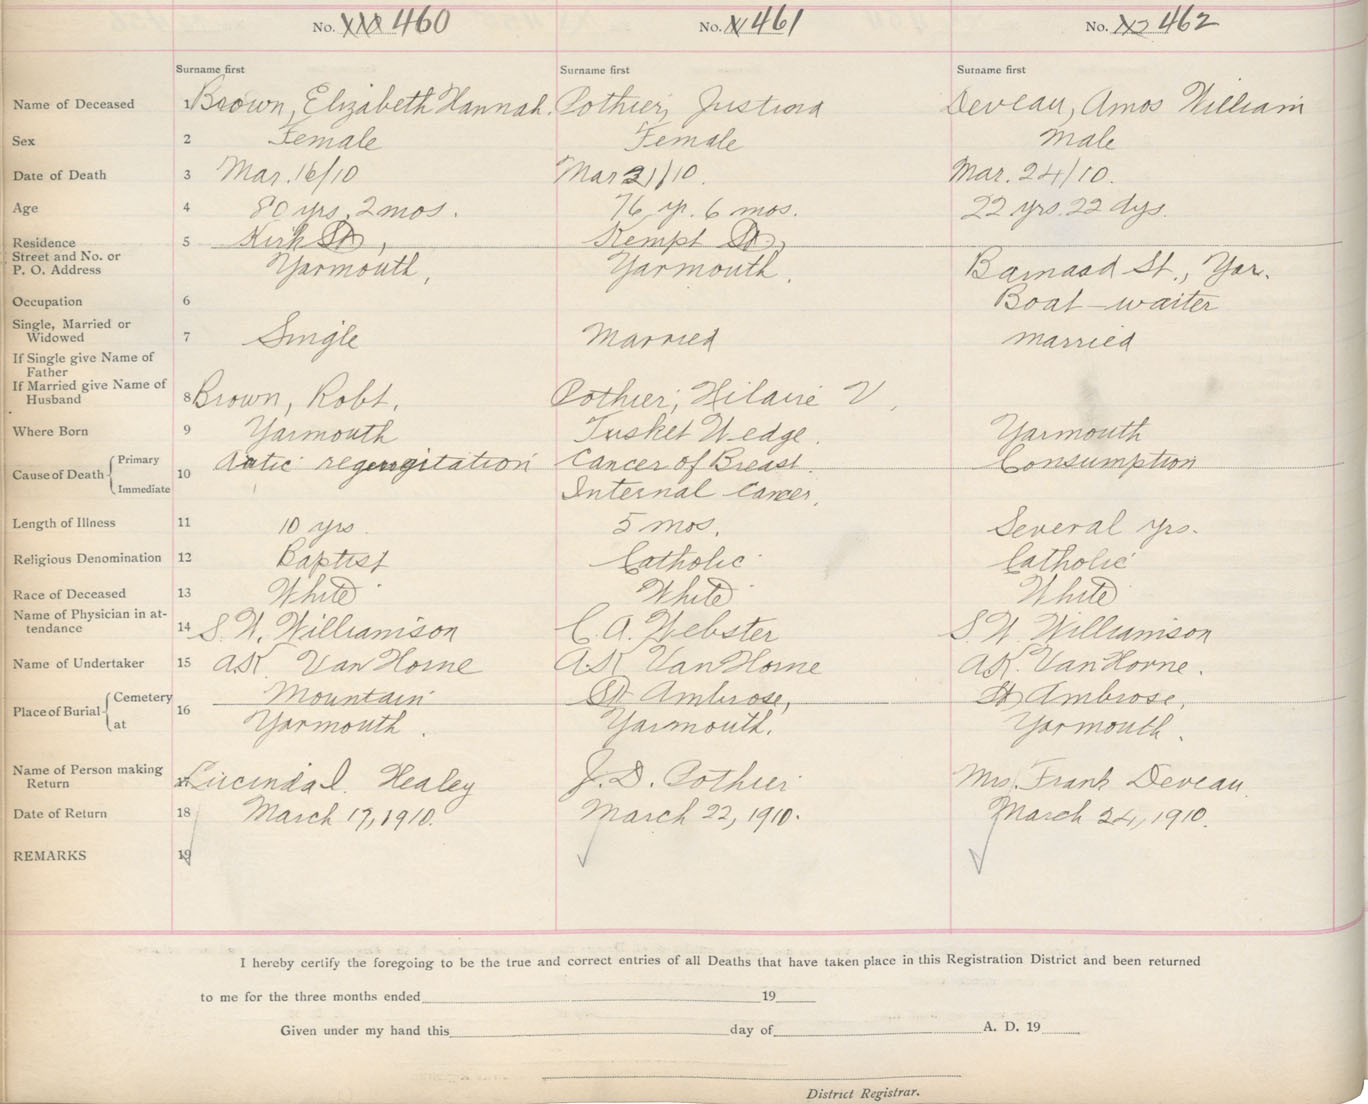 No. 460 No. 461 No. 462
Surname first Surname first Surname first
Name of Deceased 1 Brown, Elizabeth Hannah. Pothier, Justina Deveau, Amos William
Sex 2 Female Female Male
Date of Death 3 Mar. 16/10 Mar 21/10. Mar. 24/10.
Age 4 80 yrs. 2 mos. 76 yr. 6 mos. 22 yrs. 22 dys.
Residence 5 Kirk St, Kempt St,
Street and No. or
P. O. Address Yarmouth, Yarmouth. St., Yar.
Occupation 6 Boat-waiter
Single, Married or
Widowed 7 Single Married married
If Single give Name of
Father
If Married give Name of
Husband 8 Brown, Robt. Pothier, Hilaire V,
Where Born 9 Yarmouth Tusket Wedge. Yarmouth
Cause of Death Primary 10 regurgitation Cancer of Breast. Consumption
Immediate Internal Cancer,
Length of Illness 11 10 yrs. 5 mos. Several yrs.
Religious Denomination 12 Baptist Catholic Catholic
Race of Deceased 13 White White White
Name of Physician in at-
tendance 14 S. W. Williamson C. A. Webster S. W. Williamson
Name of Undertaker 15 A K Van Horne A K Van Horne A K. Van Horne.
Place of Burial Cemetery 16 Mountain St Ambrose, St Ambrose,
at Yarmouth. Yarmouth. Yarmouth.
Name of Person making
Return 17 Lucinda I. Healey J. D. Pothier Mrs. Frank Deveau.
Date of Return 18 March 17, 1910. March 22, 1910. March 24, 1910.
REMARKS 19
I hereby certify the foregoing to be the true and correct entries of all Deaths that have taken place in this Registration District and been returned
to me for the three months ended 19
Given under my hand this day of A. D. 19
District Registrar.